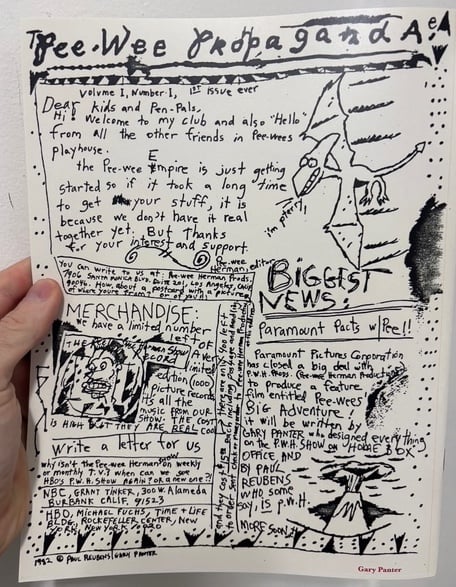 The Pee-Wee PropagandA!
Volume I, Number 1, 1ST issue ever
Dear kids and Pen-Pals,
Hi! Welcome to my club and also "Hello"
from all the other friends in Pee-wees
playhouse.
the Pee-wee Empire is just getting
started so if it took a long time
to get your stuff, it is
because we don't have it real
together yet. But Thanks
for your interest and support
Pee-wee
Herman, editor
i'm pterri!
You can write to us at: Pee-wee Herman Prods.
7906 SANTA MONICA BLVD. SUITE 201, LOS ANGELES, CALIF.
90046. How about a postcard with a picture
of where you're from? or of you!!
MERCHANDISE:
we have a limited number
left OF
A Very
limited
edition (1000)
Picture record
its all the
music FROM OUR
SHOW. THE COST
IS HIGH BUT THEY ARE REAL COOL
Write a letter for us
why isn't the Pee-wee Herman show on weekly
or monthly T.V.? when can we see
HBO's P.W.H. SHOW AGAIN? or a new one?
NBC, GRANT TINKER, 300 W. Alameda
BURBANK CALIF. 91523
HBO, MICHAEL FUCHS, TIME + LIFE
BLDG, ROCKEFELLER CENTER, NEW
YORK, NEW YORK 10020
BIGGEST
NEWS:
Paramount Pacts w/ Pee!!
Paramount Pictures Corporation
has closed a big deal with
P.W.H. Prods.
to produce a feature
film entitled Pee-wees
BiG Adventure!
it will be written by
GARY PANTER who designed everything
on the P.W.H. SHOW on HOME BOX
OFFICE, AND
BY PAUL
REUBENS
WHO SOME
SAY, IS P.W.H.
MORE SOON
1982 © PAUL REUBENS/GARY PANTER
Gary Panter